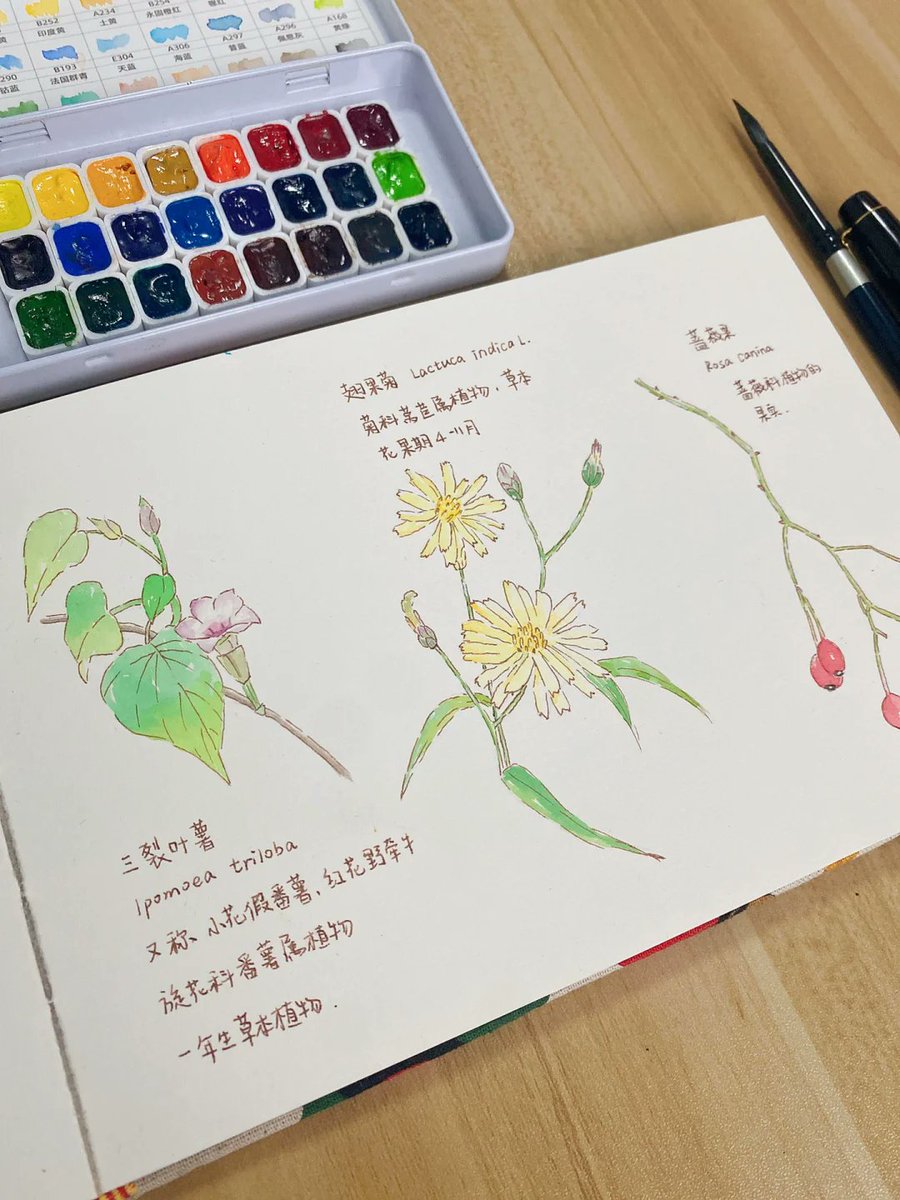 B252
A234
B254
印度黄
土黄
永固橙红
橙红
A306
A297
A296
A168
B193
E304
海蓝
普蓝
佩恩灰
黄绿
290
法国群青
天蓝
钴蓝
翅果菊 Lactuca indica L.
菊科莴苣属植物，草本
花果期4-11月
蔷薇果
Rosa canina
蔷薇科植物的
果实.
三裂叶薯
Ipomoea triloba
又称、小花假番薯，红花野牵牛
旋花科番薯属植物
一年生草本植物.